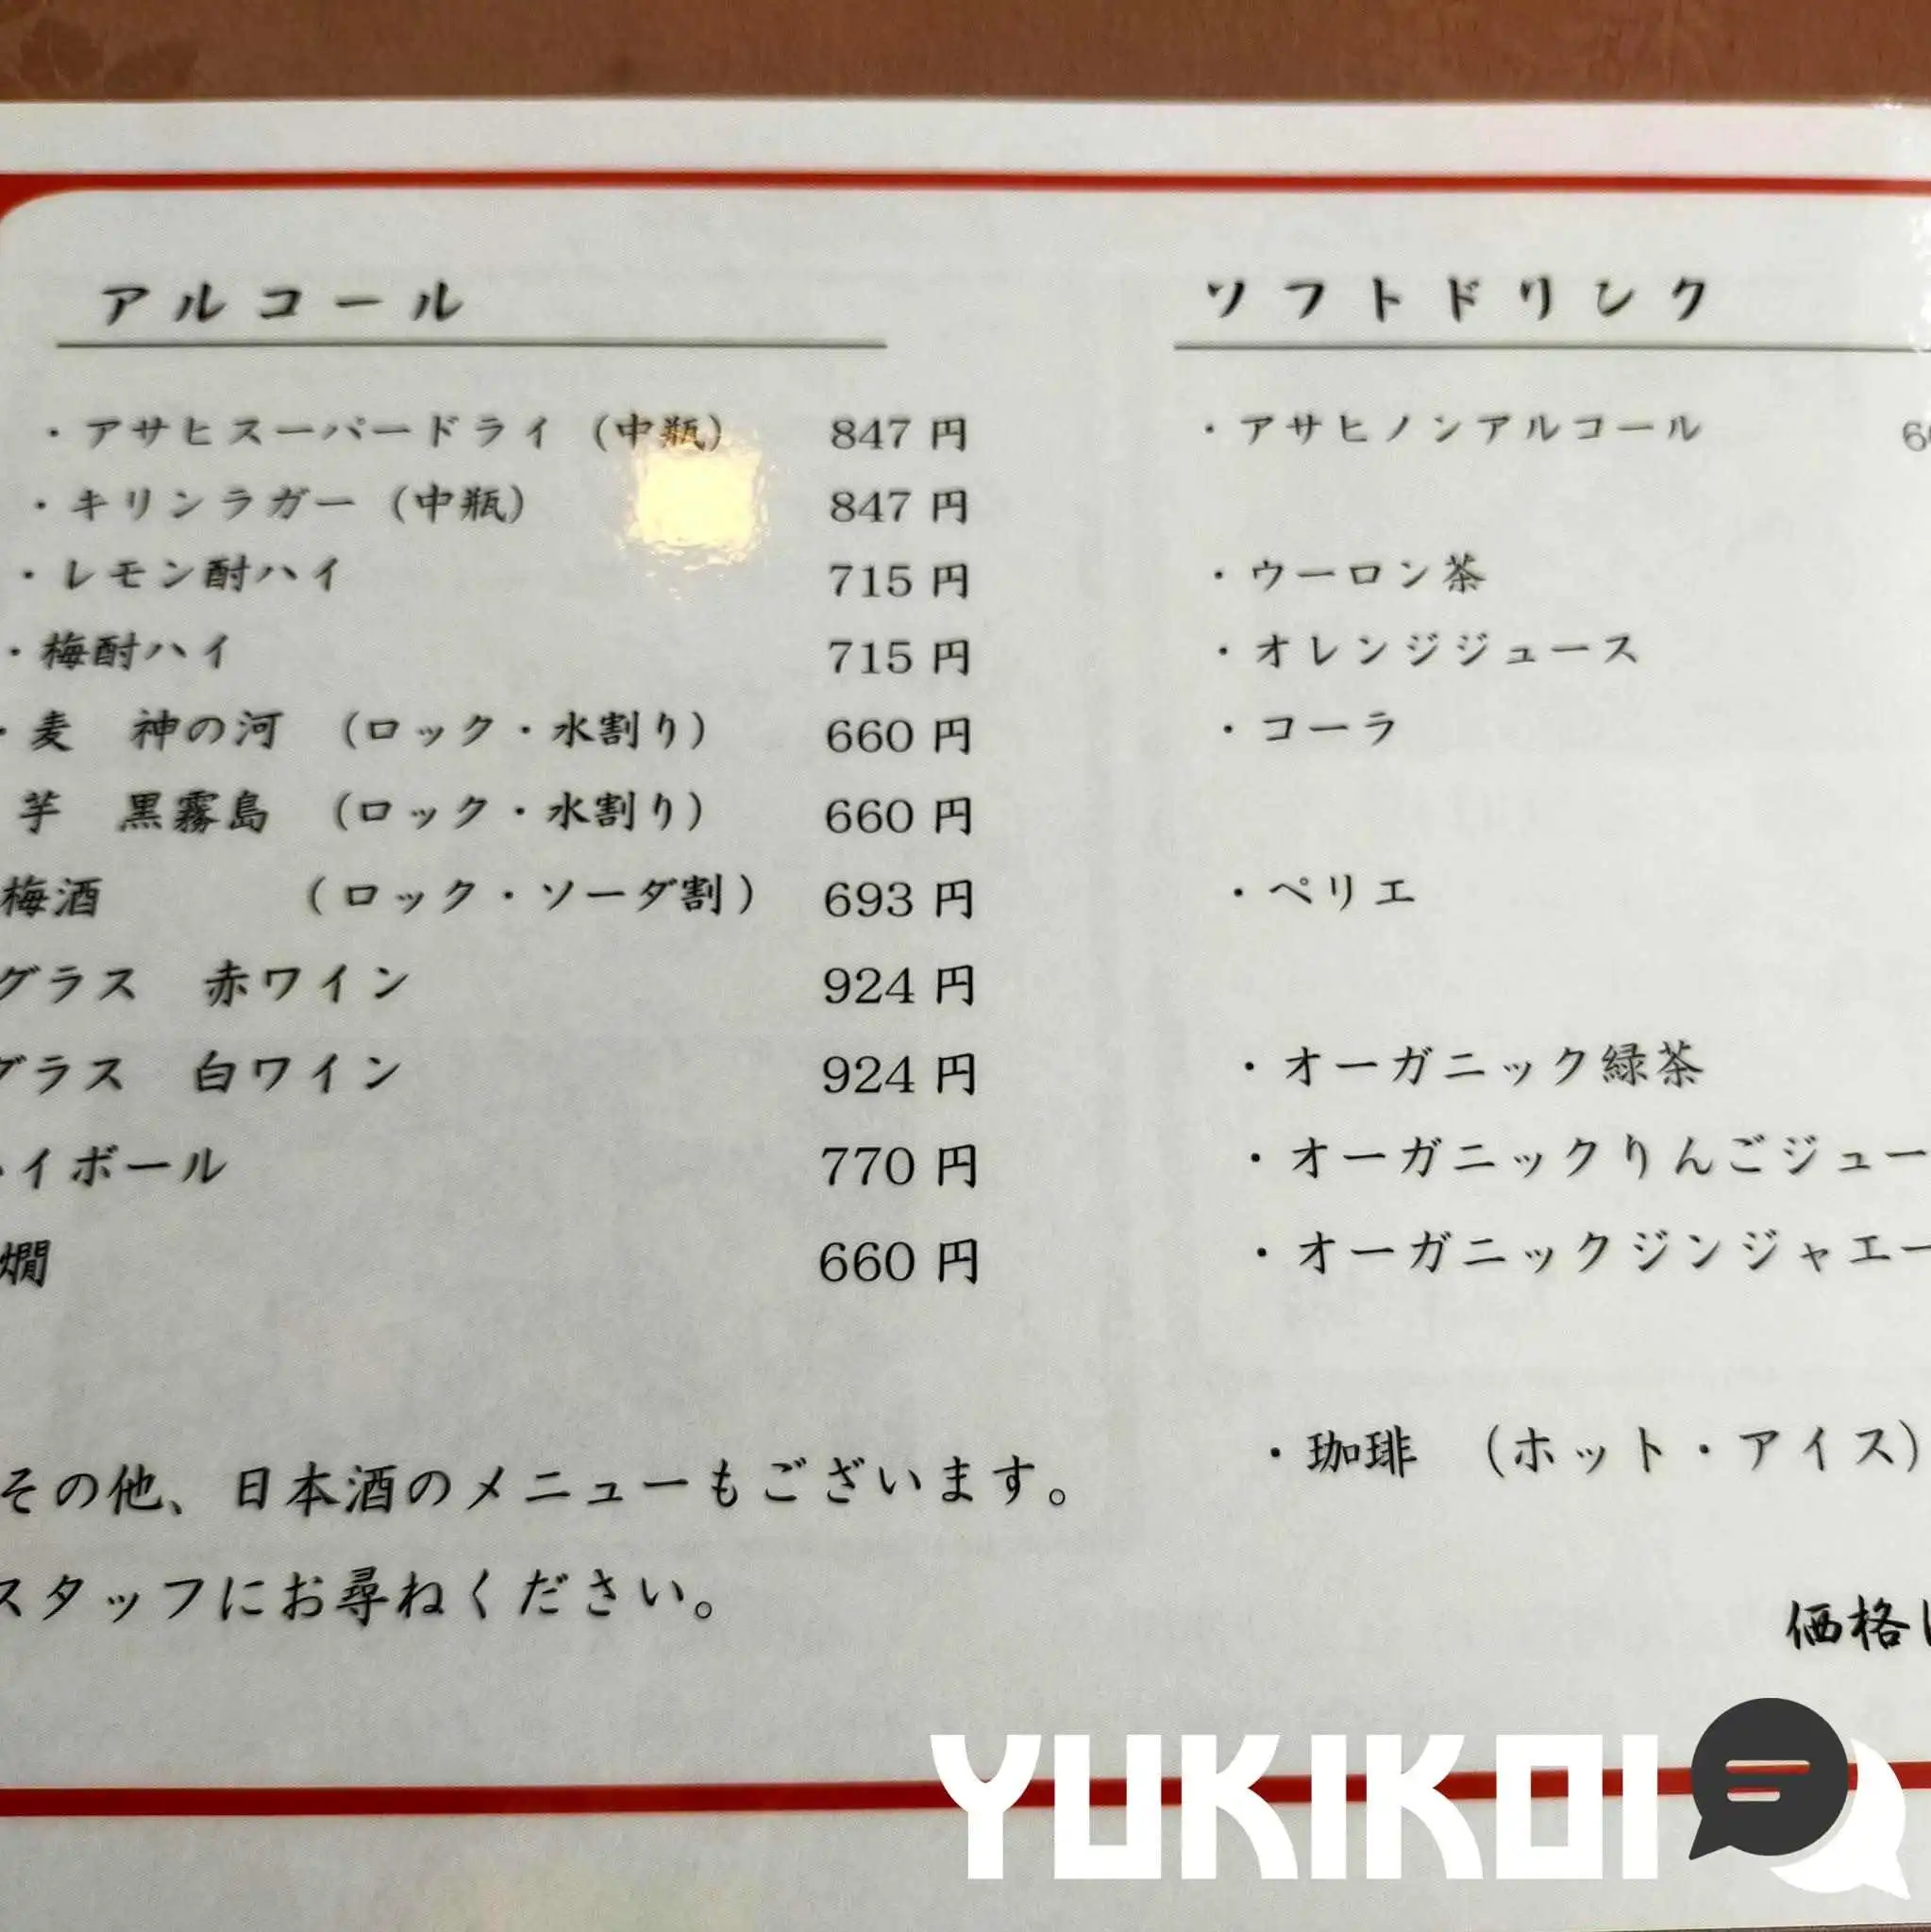 アルコール
・アサヒスーパードライ（中瓶） 847 円
・キリンラガー（中瓶） 847 円
・レモン酎ハイ 715 円
・梅酎ハイ 715 円
・麦　神の河　（ロック・水割り） 660 円
芋　黒霧島　（ロック・水割り） 660 円
梅酒　（ロック・ソーダ割） 693 円
グラス　赤ワイン 924 円
グラス　白ワイン 924 円
イボール 770 円
燗 660 円
その他、日本酒のメニューもございます。
スタッフにお尋ねください。
ソフトドリンク
・アサヒノンアルコール
・ウーロン茶
・オレンジジュース
・コーラ
・ペリエ
・オーガニック緑茶
・オーガニックりんごジュー
・オーガニックジンジャエー
・珈琲　（ホット・アイス）
価格
YUKIKOI